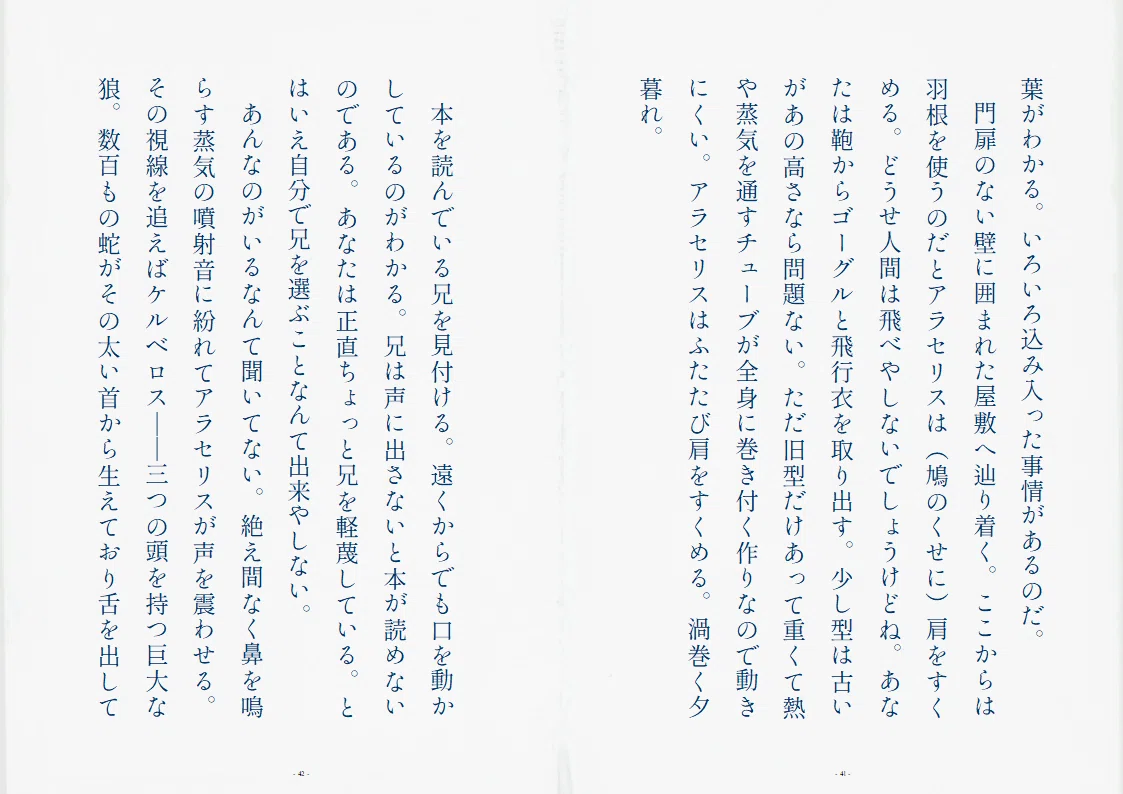 葉がわかる。いろいろ込み入った事情があるのだ。
　門扉のない壁に囲まれた屋敷へ辿り着く。ここからは
羽根を使うのだとアラセリスは（鳩のくせに）肩をすく
める。どうせ人間は飛べやしないでしょうけどね。あな
たは鞄からゴーグルと飛行衣を取り出す。少し型は古い
があの高さなら問題ない。ただ旧型だけあって重くて熱
や蒸気を通すチューブが全身に巻き付く作りなので動き
にくい。アラセリスはふたたび肩をすくめる。渦巻く夕
暮れ。
- 41 -
　本を読んでいる兄を見付ける。遠くからでも口を動か
しているのがわかる。兄は声に出さないと本が読めない
のである。あなたは正直ちょっと兄を軽蔑している。と
はいえ自分で兄を選ぶことなんて出来やしない。
　あんなのがいるなんて聞いてない。絶え間なく鼻を鳴
らす蒸気の噴射音に紛れてアラセリスが声を震わせる。
その視線を追えばケルベロス――三つの頭を持つ巨大な
狼。数百もの蛇がその太い首から生えており舌を出して
- 42 -